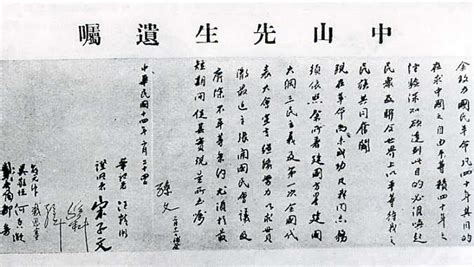 中山先生遺囑
余致力國民革命凡四十年其目的
在求中國之自由平等積四十年之
經驗深知欲達到此目的必須喚起
民眾及聯合世界上以平等待我之
民族共同奮鬥
現在革命尚未成功凡我同志務
須依照余所著建國方略建國
大綱三民主義及第一次全國代
表大會宣言繼續努力以求貫
徹最近主張開國民會議及
廢除不平等條約尤須於最
短期間促其實現是所至囑
孫文
中華民國十四年二月二十四日
筆記者 汪精衛
證明者 宋子文
孫科
戴恩賽
吳敬恆 何香凝
鄒魯